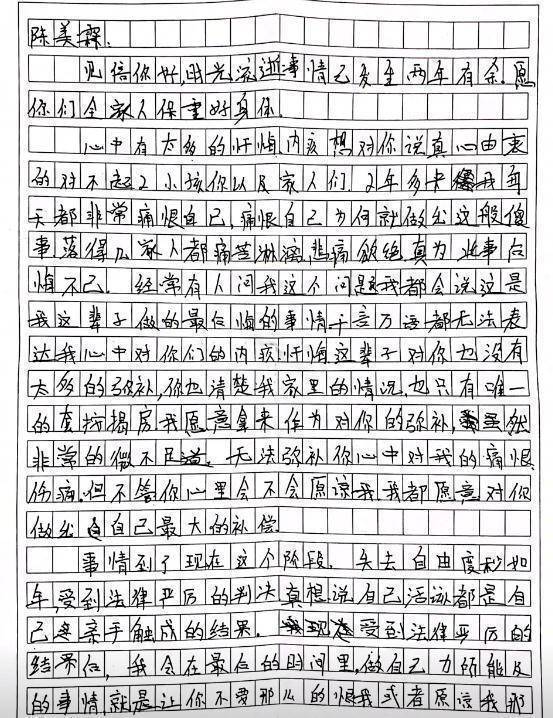 陈美霖.
见信你好,时光流逝事情已发生两年有余.愿
你们全家人保重好身体.
心中有太多的忏悔内疚想对你说真心由衷
的对不起2小孩你以及家人们.2年多来我每
天都非常痛恨自己,痛恨自己为何就做出这般傻
事落得几家人都痛苦淋漓,悲痛欲绝真为此事后
悔不已. 经常有人问我这个问题我都会说这是
我这辈子做的最后悔的事情千言万语都无法表
达我心中对你们的内疚忏悔这辈子对你也没有
太多的弥补,你也清楚我家里的情况.也只有唯一
的套按揭房我愿意拿来作为对你的弥补,虽然
非常的微不足道. 无法弥补你心中对我的痛恨
伤痛.但不管你心里会不会原谅我我都愿意对你
做出自己最大的补偿.
事情到了现在这个阶段. 失去自由度秒如
年,受到法律严厉的判决真想说自己活该都是自
己亲手触成的结果. 我现在受到法律严厉的
结果后, 我会在最后的时间里,做自己力所能及
的事情,就是让你不要那么的恨我或者原谅我那